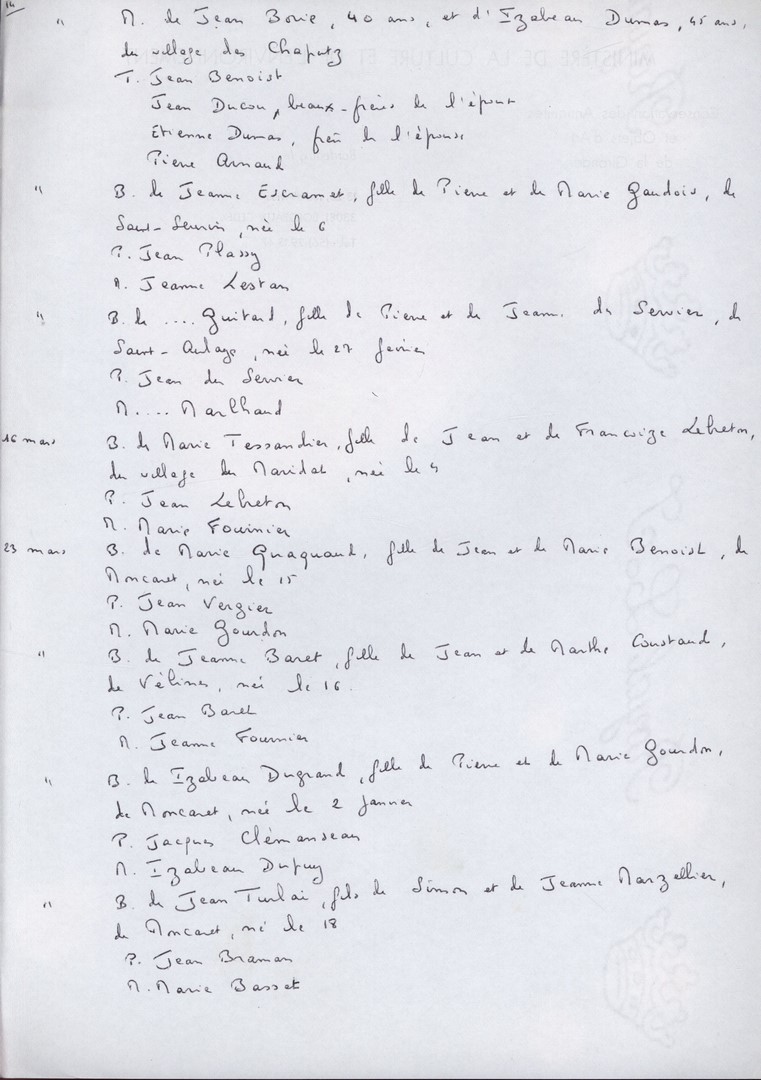 14
" M. de Jean Borie, 40 ans, et d'Izabeau Dumas, 45 ans,
du village des Chaputz
T. Jean Benoist
Jean Ducou, beaux-frères de l'époux
Etienne Dumas, frère de l'épouse
Pierre Arnaud
" B. de Jeanne Escramet, fille de Pierre et de Marie Gaudois, de
Saint-Seurin, née le 6
P. Jean Plassy
M. Jeanne Lestan
" B. de .... Guitard, fille de Pierre et de Jeanne du Servier, de
Saint-Aulaye, née le 27 février
P. Jean du Servier
M. ... Marlhaud
16 mars B. de Marie Tessandier, fille de Jean et de Françoize Lebreton,
du village du Maridat, née le 4
P. Jean Lebreton
M. Marie Fournier
23 mars B. de Marie Gnaquaud, fille de Jean et de Marie Benoist, de
Moncaret, née le 15
P. Jean Vergier
M. Marie Gourdon
" B. de Jeanne Baret, fille de Jean et de Marthe Coustaud,
de Vélines, née le 16.
P. Jean Baret
M. Jeanne Fournier
" B. de Izabeau Dugrand, fille de Pierre et de Marie Gourdon,
de Moncaret, née le 2 janvier
P. Jacques Clémanseau
M. Izabeau Dupuy
" B. de Jean Turlai, fils de Simon et de Jeanne Marzellier,
de Moncaret, né le 18
P. Jean Braman
M. Marie Basset